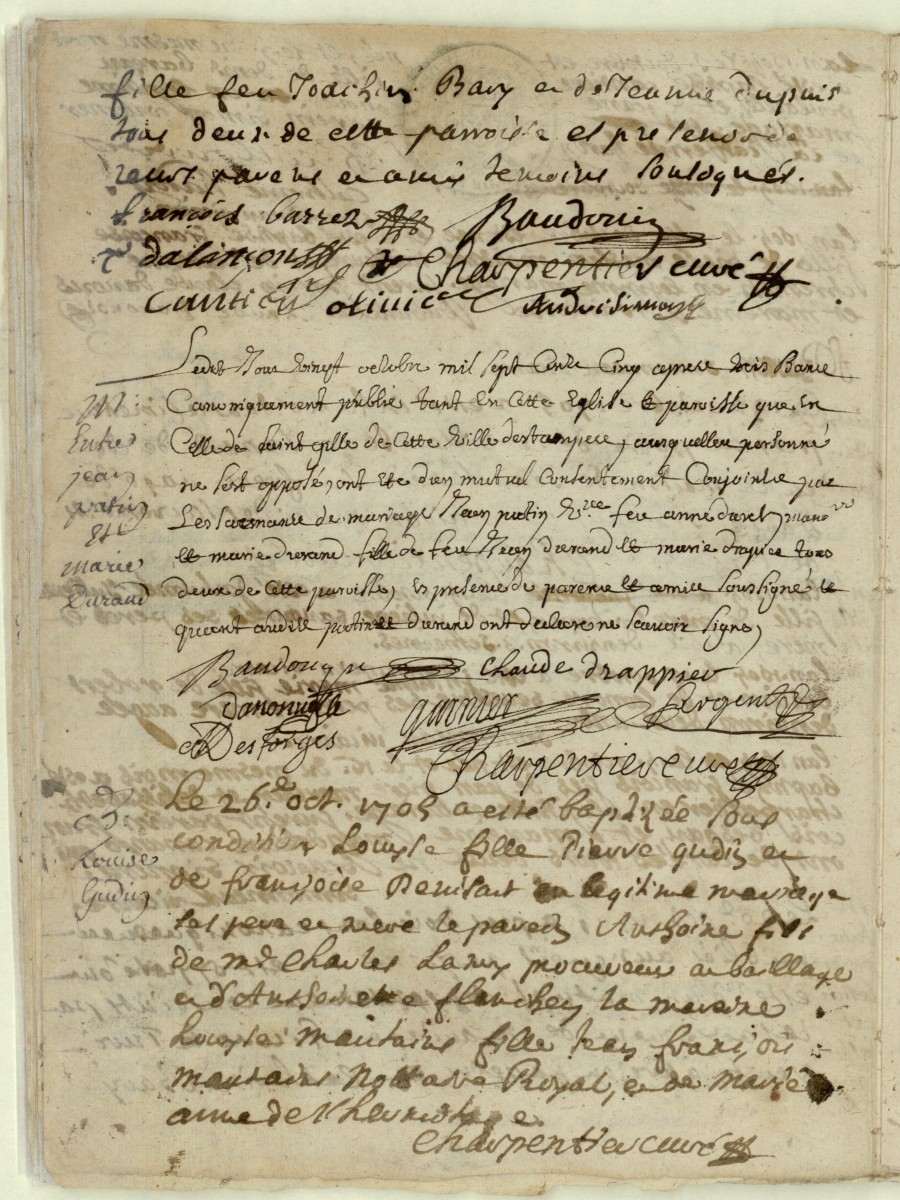 fille feu Joachin Bary et de Jeanne dupuis
tous deux de cette parroisse et presence de
leurs parens et amis temoins soulsignés.
françois barrez Baudouin
dalinçon Charpentier curé
olivier
Ledit Jour vingt octobre mil sept Cents Cinq apres trois Bans
M:
Entre
jean
patin
Et
marie
Durand
Canoniquement publié tant En Cette Eglise et paroisse que en
Celle de saint gille de Cette Ville destampes, ausquelles personne
ne sest opposé, ont ete d'un mutuel Consentement Conjoints par
Les sacremans de mariage Jean patin feu anne
et marie durand fille de feu Jean durand et marie tous
deux de Cette paroisse, en presence de parens et amis soussigné et
quant audits patin et durand ont declare ne scavoir signe,
Baudouyn Chaude drappier
danonville garnier Sergent
Desforges
Charpentier curé
B:
Louise
Gudin
Le 26.e oct. 1705 a esté baptizée sous
condition Louyse fille Pierre gudin et
de françoise Denisart en legitime mariage
ses pere et mere le parein Anthoine fils
de me Charles Lamy procureur au baillage
et d'Anthoinette la mareine
Louyse mantains fille Jean françois
mantains Nottaire Royal, et de Marie
anne de l'hermitage
Charpentier curé